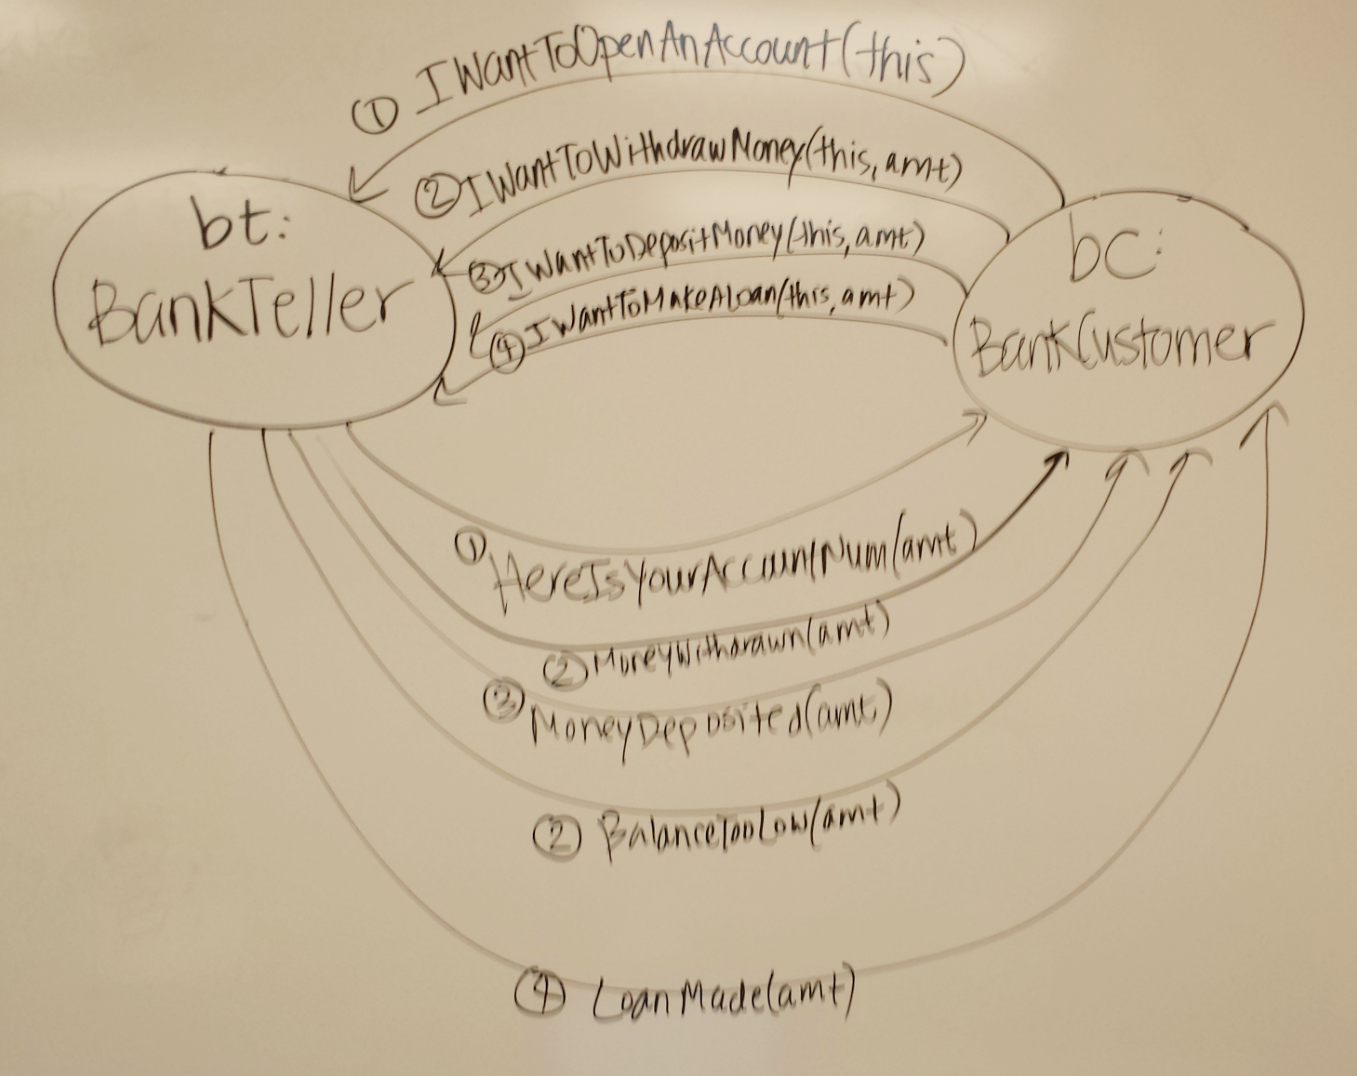 ① IWantToOpenAnAccount(this)
② IWantToWithdrawMoney(this, amt)
③ IWantToDepositMoney(this, amt)
④ IWantToMakeALoan(this, amt)
bt:
BankTeller
bc:
BankCustomer
① HereIsYourAccountNum(amt)
② MoneyWithdrawn(amt)
③ MoneyDeposited(amt)
② BalanceTooLow(amt)
④ LoanMade(amt)